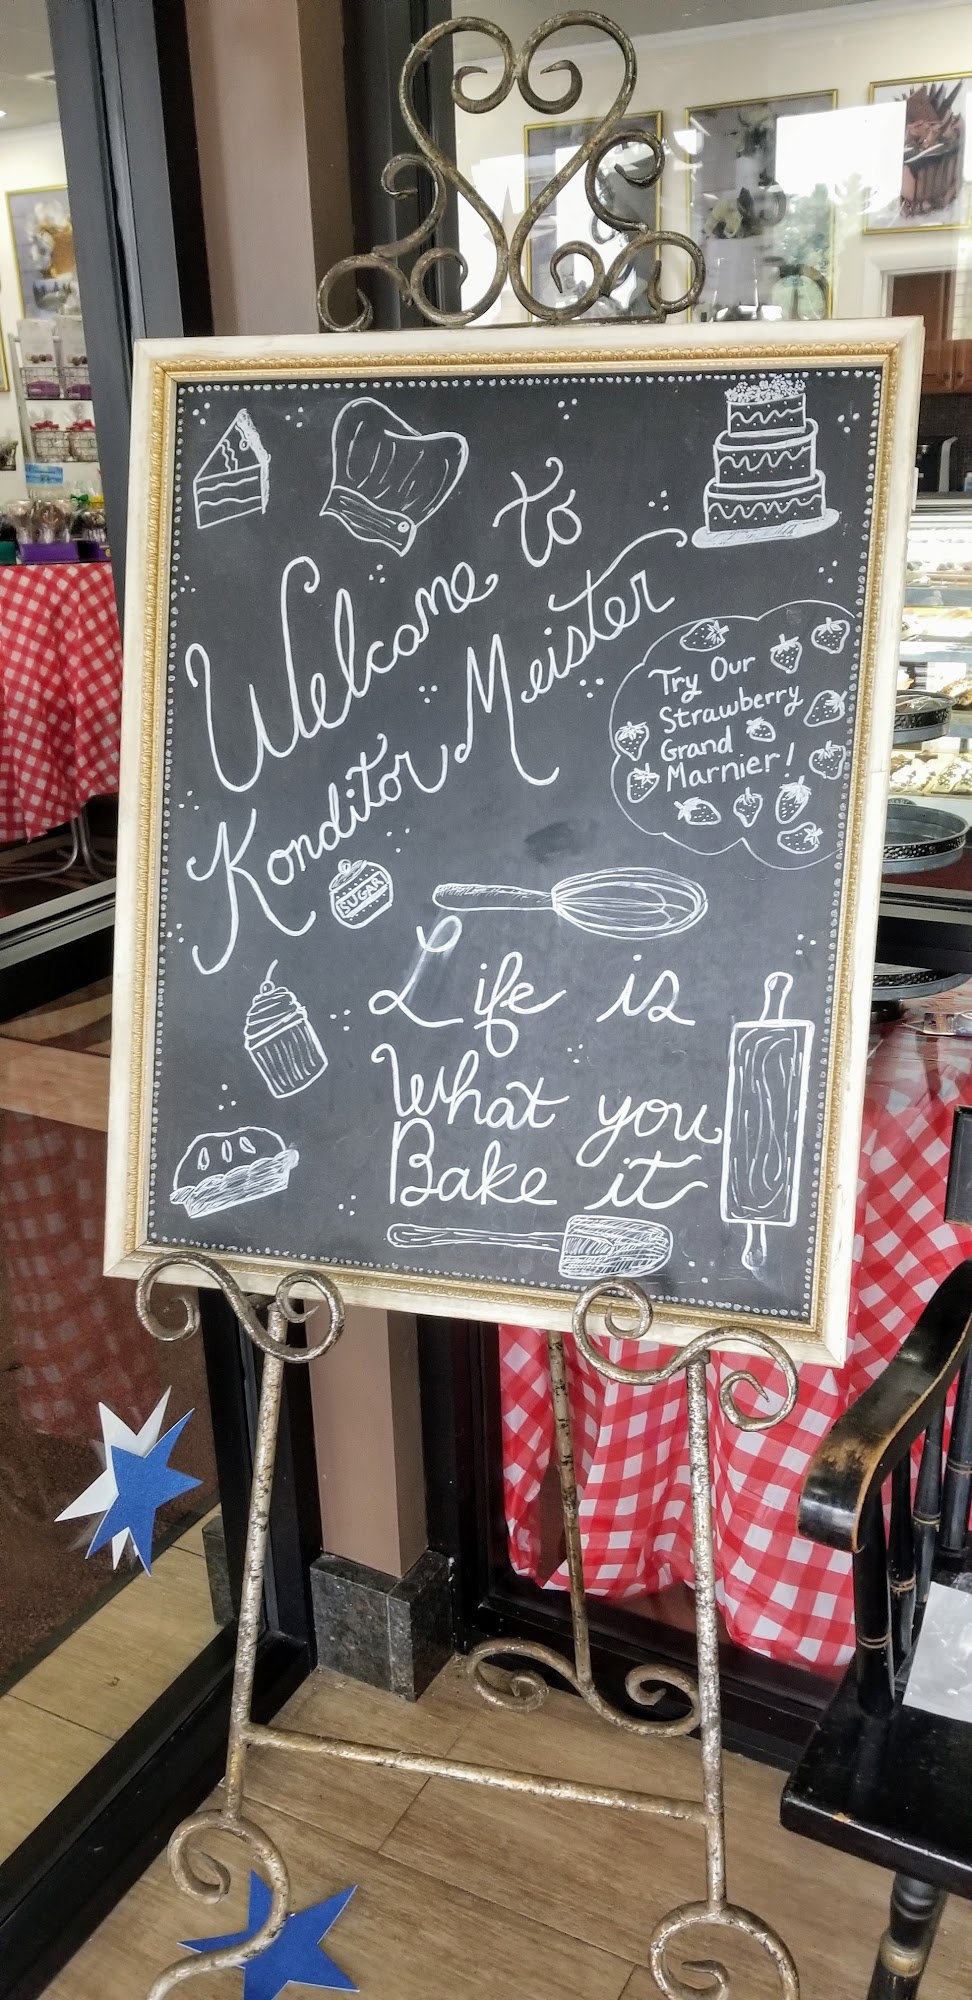 Welcome to
Konditor Meister
Try Our
Strawberry
Grand
Marnier!
SUGAR
Life is
What you
Bake it